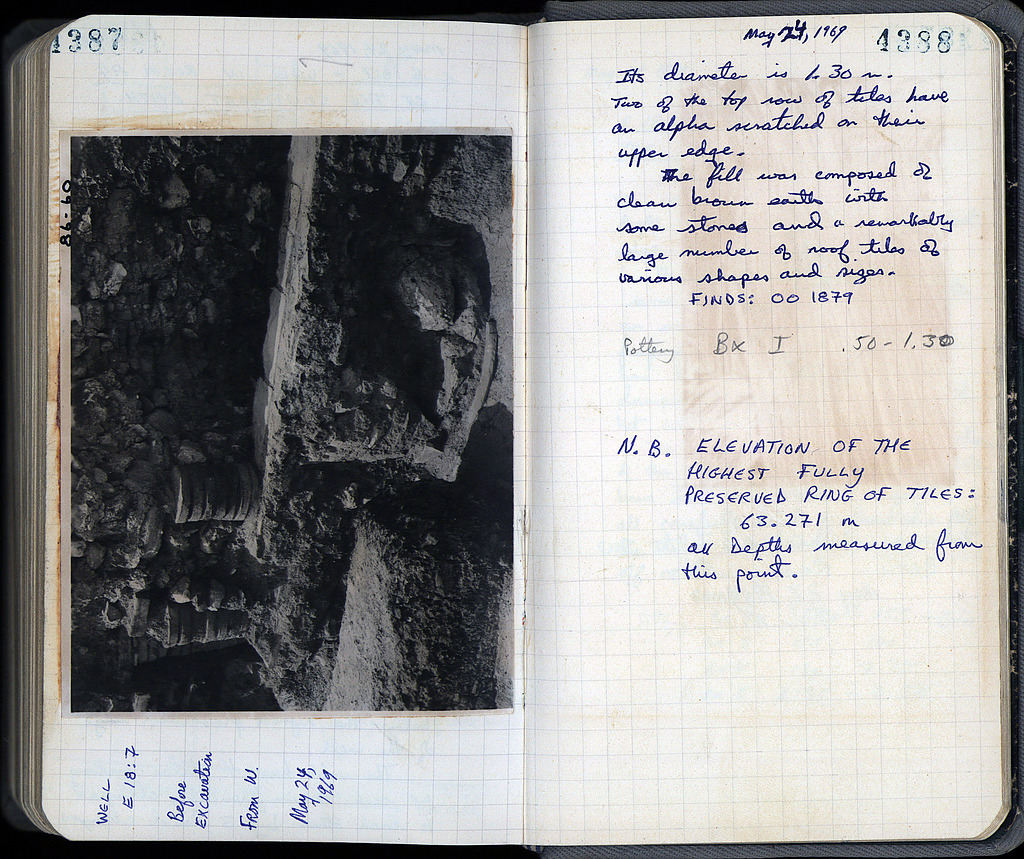 4387
86-60
WELL
E 18:7
Before
Excavation
From W.
May 24,
1969
May 24, 1969
4388
Its diameter is 1.30 m.
Two of the top row of tiles have
an alpha scratched on their
upper edge.
The fill was composed of
clean brown earth with
some stones and a remarkably
large number of roof tiles of
various shapes and sizes.
FINDS: OO 1879
Pottery Bx I .50-1.30
N.B. ELEVATION OF THE
HIGHEST FULLY
PRESERVED RING OF TILES:
63.271 m
all Depths measured from
this point.